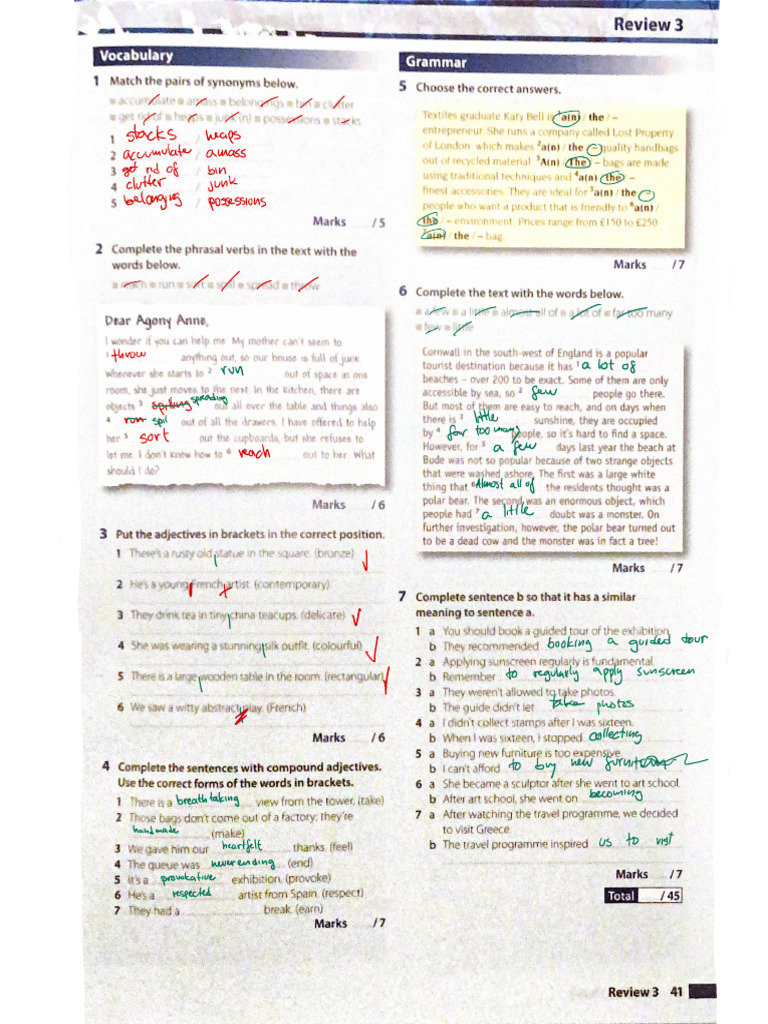 Review 3
Vocabulary
1 Match the pairs of synonyms below.
accumulate amass belongings bin clutter
get rid of heaps junk (n) possessions stacks
1 stacks / heaps
2 accumulate / amass
3 get rid of / bin
4 clutter / junk
5 belonging / possessions
Marks /5
2 Complete the phrasal verbs in the text with the
words below.
reach run sort spill spread throw
Dear Agony Anne,
I wonder if you can help me. My mother can't seem to
1 throw anything out, so our house is full of junk
Whenever she starts to 2 run out of space in one
room, she just moves to the next. In the kitchen, there are
objects 3 spreading out all over the table and things also
4 run spil out of all the drawers. I have offered to help
her 5 sort out the cupboards, but she refuses to
let me. I don't know how to 6 reach out to her. What
should I do?
Marks /6
3 Put the adjectives in brackets in the correct position.
1 There's a rusty old statue in the square. (bronze)
2 He's a young French artist. (contemporary)
3 They drink tea in tiny china teacups. (delicate)
4 She was wearing a stunning silk outfit. (colourful)
5 There is a large wooden table in the room. (rectangular)
6 We saw a witty abstract play. (French)
Marks /6
4 Complete the sentences with compound adjectives.
Use the correct forms of the words in brackets.
1 There is a breath taking view from the tower. (take)
2 Those bags don't come out of a factory; they're
handmade (make)
3 We gave him our heartfelt thanks. (feel)
4 The queue was never ending (end)
5 It's a provokative exhibition. (provoke)
6 He's a respected artist from Spain. (respect)
7 They had a break. (earn)
Marks /7
Grammar
5 Choose the correct answers.
Textiles graduate Katy Bell is 1 a(n) / the / –
entrepreneur. She runs a company called Lost Property
of London which makes 2 a(n) / the / – quality handbags
out of recycled material. 3 A(n) / The / – bags are made
using traditional techniques and 4 a(n) / the / –
finest accessories. They are ideal for 5 a(n) / the / –
people who want a product that is friendly to 6 a(n) /
the / – environment. Prices range from £150 to £250
7 a(n) / the / – bag.
Marks /7
6 Complete the text with the words below.
a few a little almost all of a lot of far too many
few little
Cornwall in the south-west of England is a popular
tourist destination because it has 1 a lot of
beaches – over 200 to be exact. Some of them are only
accessible by sea, so 2 few people go there.
But most of them are easy to reach, and on days when
there is 3 little sunshine, they are occupied
by 4 far too many people, so it's hard to find a space.
However, for 5 a few days last year the beach at
Bude was not so popular because of two strange objects
that were washed ashore. The first was a large white
thing that 6 Almost all of the residents thought was a
polar bear. The second was an enormous object, which
people had 7 a little doubt was a monster. On
further investigation, however, the polar bear turned out
to be a dead cow and the monster was in fact a tree!
Marks /7
7 Complete sentence b so that it has a similar
meaning to sentence a.
1 a You should book a guided tour of the exhibition.
b They recommended booking a guided tour
2 a Applying sunscreen regularly is fundamental.
b Remember to regularly apply sunscreen
3 a They weren't allowed to take photos.
b The guide didn't let take photos
4 a I didn't collect stamps after I was sixteen.
b When I was sixteen, I stopped collecting
5 a Buying new furniture is too expensive.
b I can't afford to buy new
6 a She became a sculptor after she went to art school.
b After art school, she went on becoming
7 a After watching the travel programme, we decided
to visit Greece.
b The travel programme inspired us to visit
Marks /7
Total /45
Review 3 41